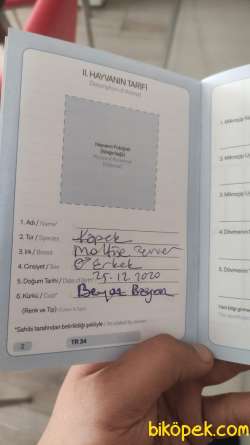 II. HAYVANIN TARİFİ
Description of Animal
Hayvanın Fotoğrafı
(İsteğe bağlı)
Picture of the Animal
(Optional)
1. Adı / Name
2. Tür / Species Köpek
3. Irk / Breed Maltise
4. Cinsiyet / Sex ♂ Erkek
5. Doğum Tarihi / Date of Birth 25.12.2020
6. Kürkü / Coat* Beyaz
(Renk ve Tip)
*Sahibi tarafından belirtildiği şekliyle / As stated by owner
2
TR 34
1. Mikroçip
2. Mikroçip
3. Mikroçip
4. Dövmenin
5. Dövmenin
biköpek.com